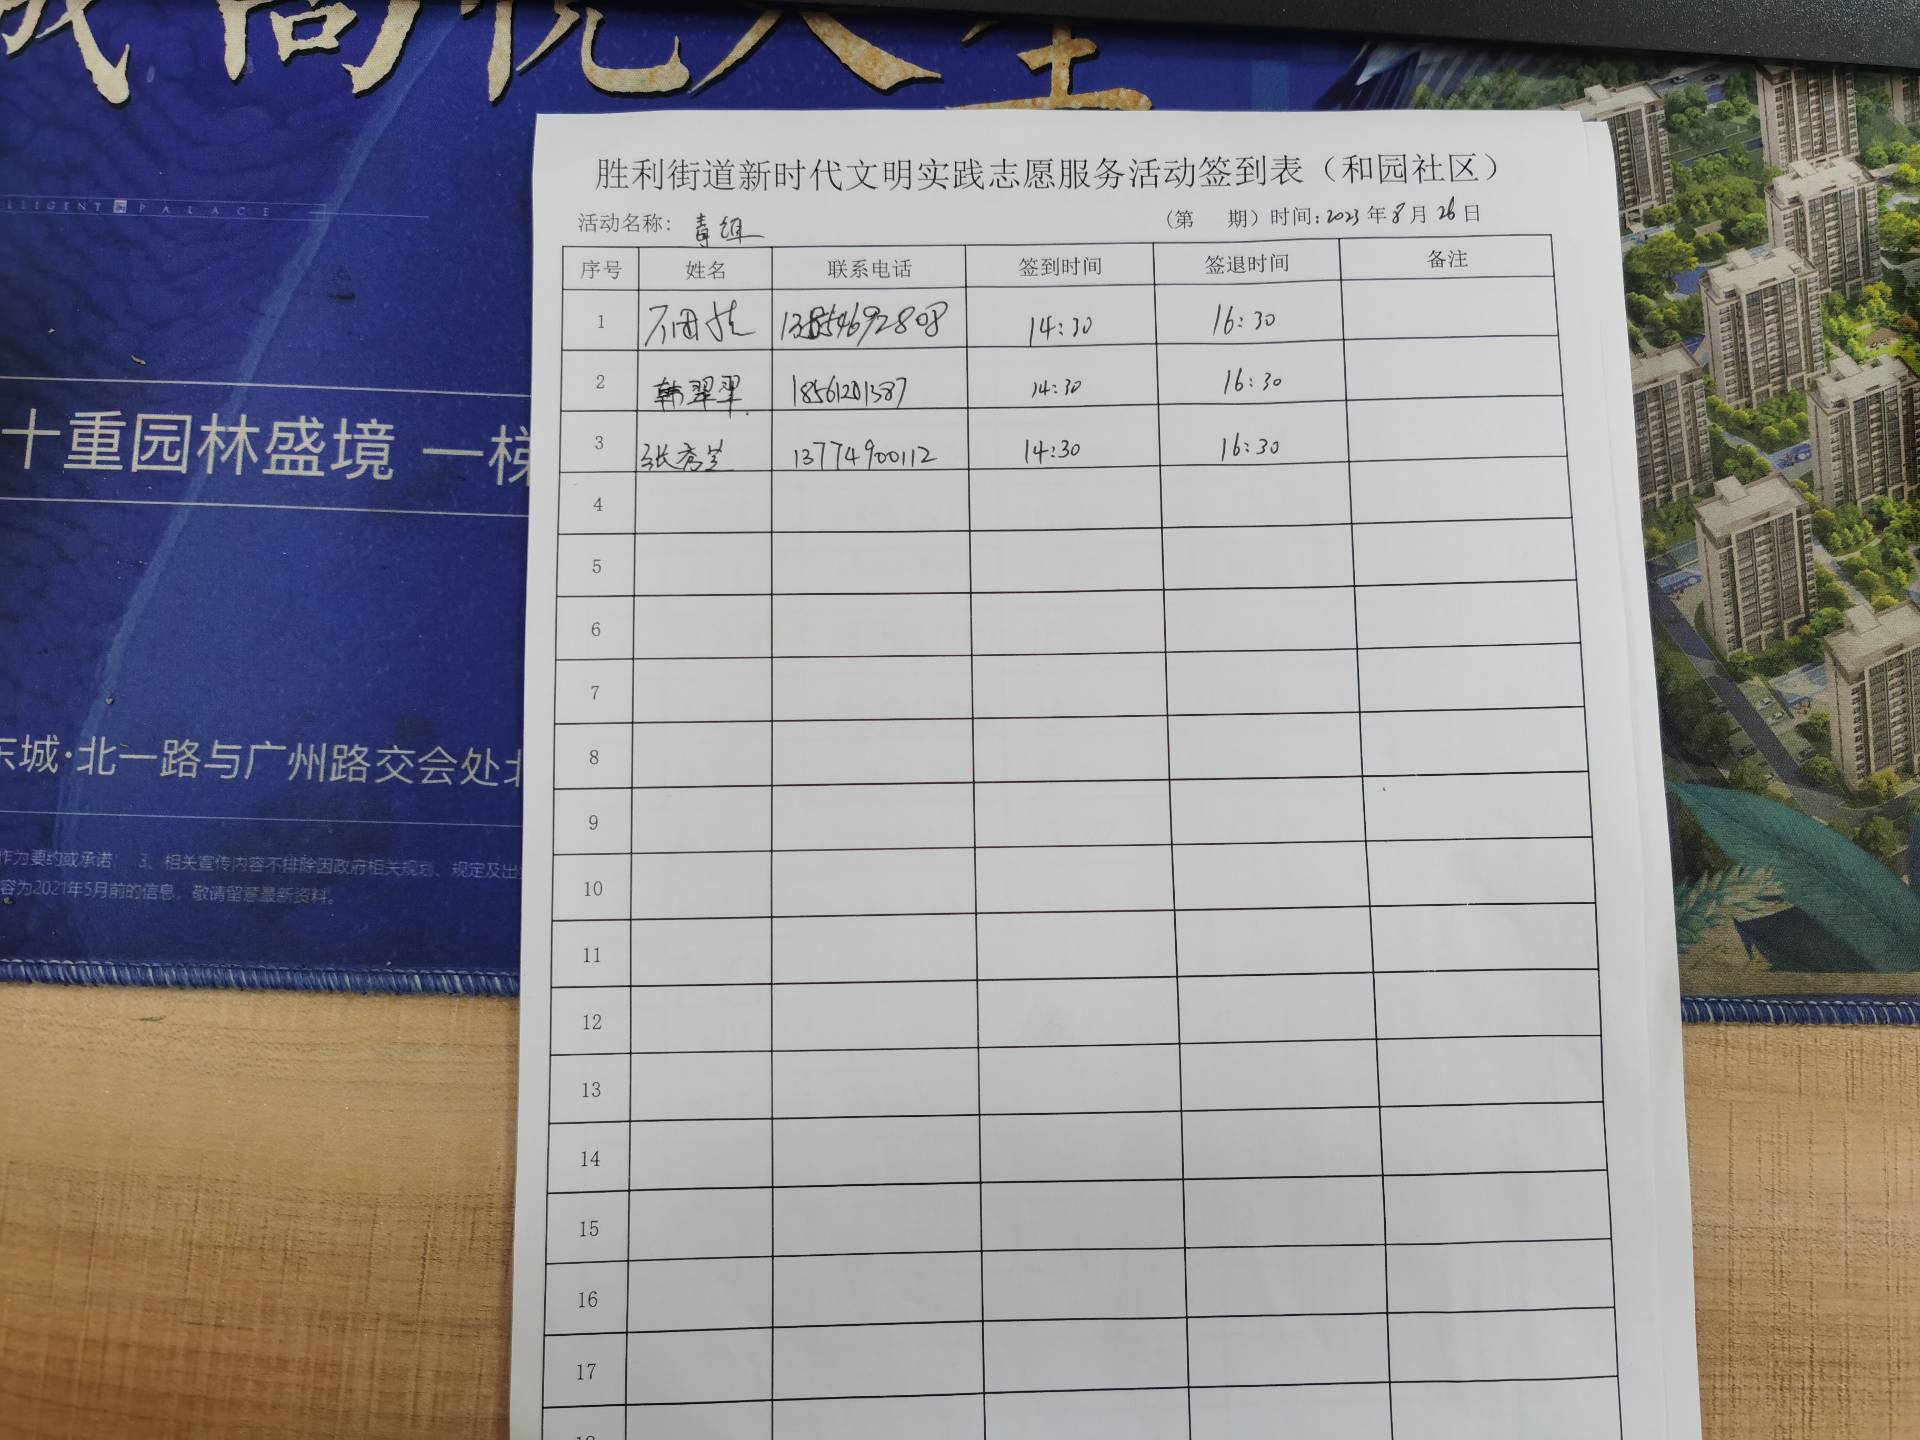 尚悦天玺
ELLIGENT PALACE
十重园林盛境 一梯
东城·北一路与广州路交会处北
作为要约或承诺; 3、相关宣传内容不排除因政府相关规划、规定及出
容为2021年5月前的信息, 敬请留意最新资料。
胜利街道新时代文明实践志愿服务活动签到表（和园社区）
活动名称: （第 期）时间: 2023 年 8 月 26 日
序号 姓名 联系电话 签到时间 签退时间 备注
1 13854692808 14:30 16:30
2 韩翠翠 18561201387 14:30 16:30
3 张秀兰 13774900112 14:30 16:30
4
5
6
7
8
9
10
11
12
13
14
15
16
17